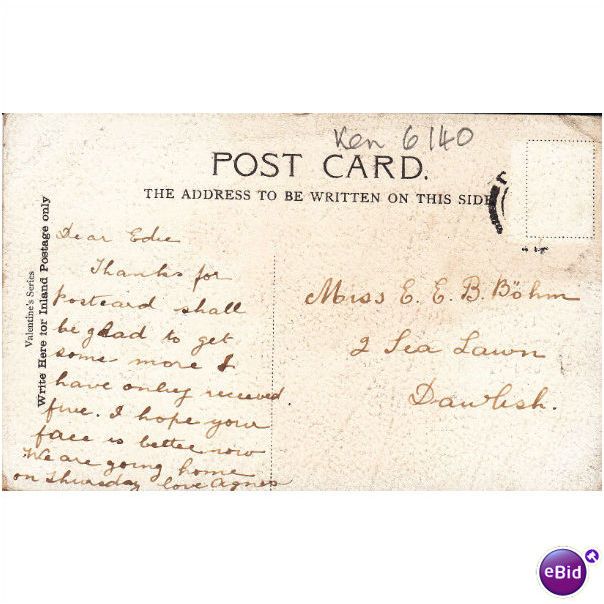 Ken 6140
POST CARD.
THE ADDRESS TO BE WRITTEN ON THIS SIDE
Valentine's Series
Write Here for Inland Postage only
Dear Edie
Thanks for
postcard shall
be glad to get
some more I
have only received
five. I hope your
face is better now
We are going home
on Thursday love Agnes
Miss E. E. B. Böhm
2 Sea Lawn
Dawlish.
eBid